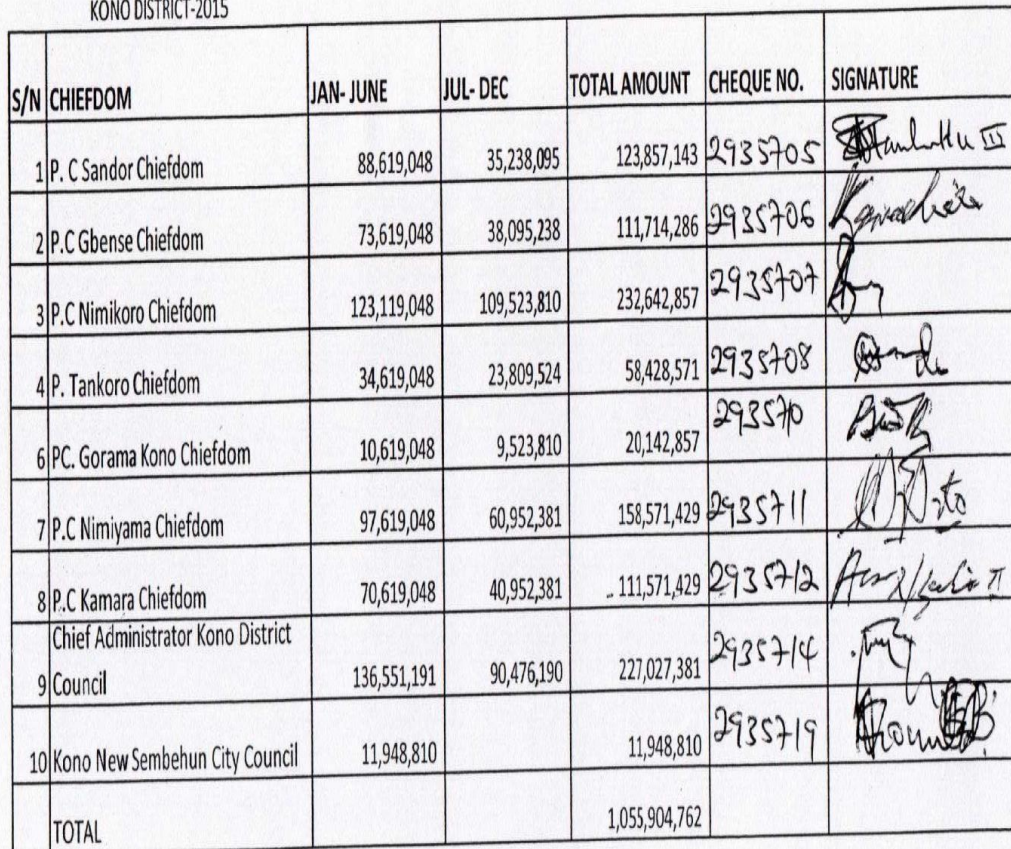 KONO DISTRICT-2015
S/N CHIEFDOM JAN- JUNE JUL- DEC TOTAL AMOUNT CHEQUE NO. SIGNATURE
1 P. C Sandor Chiefdom 88,619,048 35,238,095 123,857,143 2935705
2 P.C Gbense Chiefdom 73,619,048 38,095,238 111,714,286 2935706
3 P.C Nimikoro Chiefdom 123,119,048 109,523,810 232,642,857 2935707
4 P. Tankoro Chiefdom 34,619,048 23,809,524 58,428,571 2935708
6 PC. Gorama Kono Chiefdom 10,619,048 9,523,810 20,142,857 293570
7 P.C Nimiyama Chiefdom 97,619,048 60,952,381 158,571,429 2935711
8 P.C Kamara Chiefdom 70,619,048 40,952,381 111,571,429 2935712
Chief Administrator Kono District
9 Council 136,551,191 90,476,190 227,027,381 2935714
10 Kono New Sembehun City Council 11,948,810 11,948,810 2935719
TOTAL 1,055,904,762